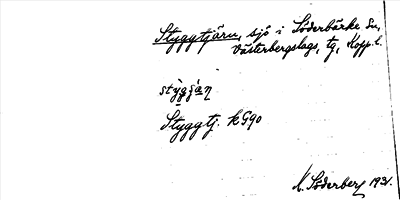 Styggtjärn, sjö i Söderbärke sn,
Västerbergslags, tg, Kopp. l.
Styggtj. kG90
N. Söderberg 1931.